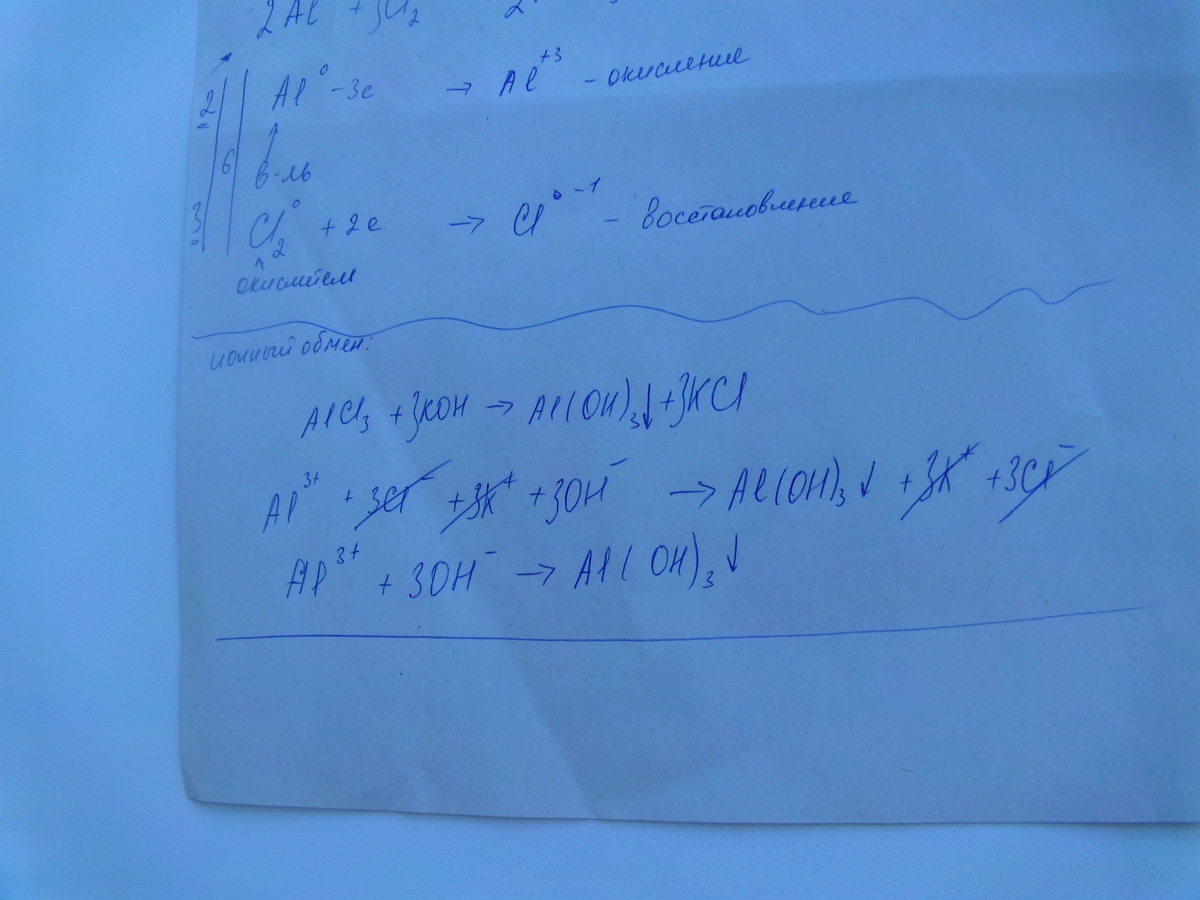 2Al + 3Cl₂ 2
"2 Al⁰ - 3e → Al⁺³ - окисление
6
в-ль
"3 Cl₂⁰ + 2e → Cl⁻¹ - восстановление
окислителі
ионный обмен:
AlCl₃ + 3KOH → Al(OH)₃↓ + 3KCl
Al³⁺ + 3Cl⁻ + 3K⁺ + 3OH⁻ → Al(OH)₃↓ + 3K⁺ + 3Cl⁻
Al³⁺ + 3OH⁻ → Al(OH)₃↓